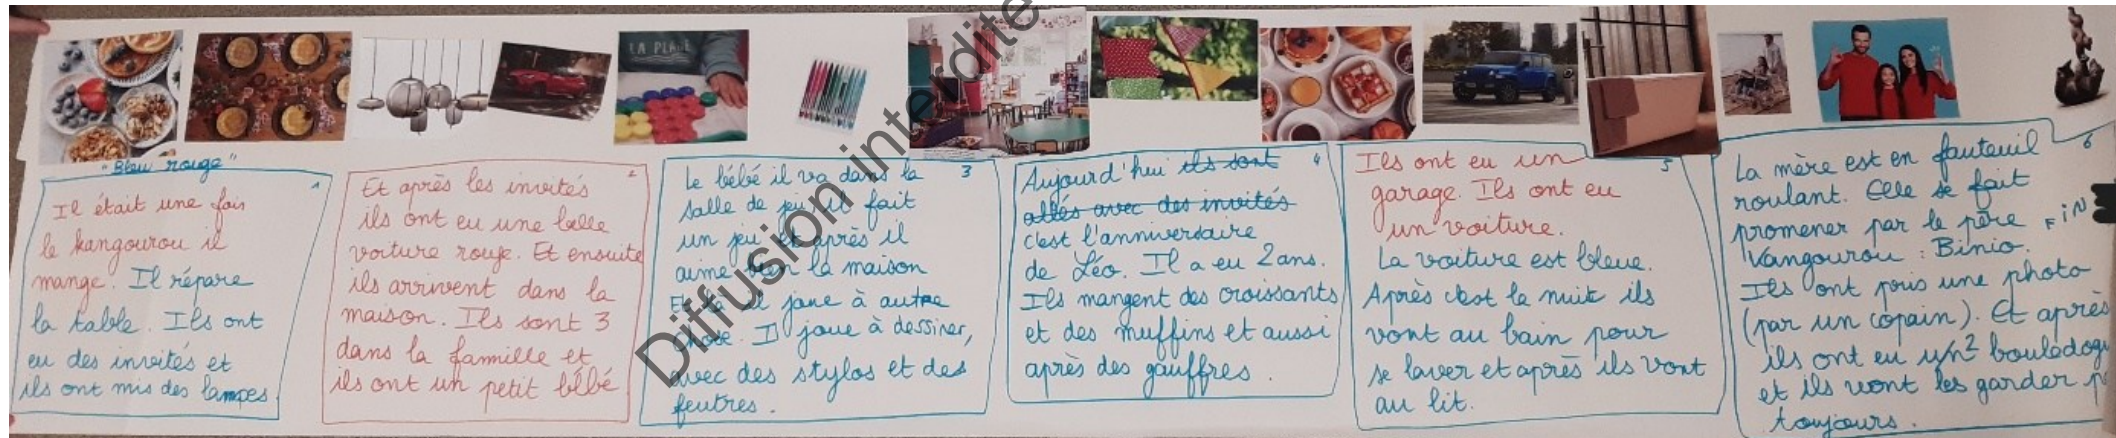 LA PLAGE
"Bleu rouge"
1
Il était une fois
le kangourou il
mange. Il répare
la table. Ils ont
eu des invités et
ils ont mis des lampes
2
Et après les invités
ils ont eu une belle
voiture rouge. Et ensuite
ils arrivent dans la
maison. Ils sont 3
dans la famille et
ils ont un petit bébé
3
Le bébé il va dans la
salle de jeu il fait
un jeu et après il
aime bien la maison
Et là il joue à autre
chose. Il joue à dessiner,
avec des stylos et des
feutres.
4
Aujourd'hui ils sont
allés avec des invités
c'est l'anniversaire
de Léo. Il a eu 2 ans.
Ils mangent des croissants
et des muffins et aussi
après des gauffres.
5
Ils ont eu un
garage. Ils ont eu
un voiture.
La voiture est bleue.
Après c'est la nuit ils
vont au bain pour
se laver et après ils vont
au lit.
6
La mère est en fauteuil
roulant. Elle se fait
promener par le père
Kangourou : Binio.
Ils ont pris une photo
(par un copain). Et après
ils ont eu 2
et ils vont les garder
toujours.
FIN
Diffusion interdite